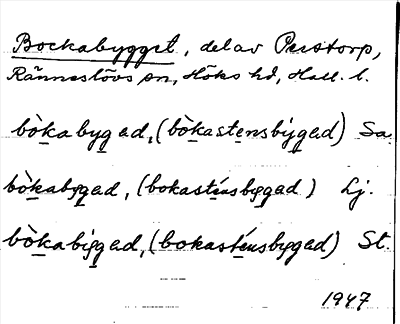 Bockabygget, del av Perstorp,
Ränneslövs sn, Höks hd, Hall. l.
bò̱kabyg̱ad, (bò̱kaste̱nsby̱g̱ad) Sa.
bò̱kaby̱g̱ad, (bokasté̱nsby̱g̱ad) Lj.
bò̱kaby̱g̱ad, (bokasté̱nsby̱g̱ad) St.
1947